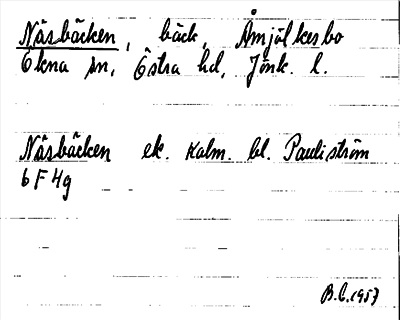 Näsbäcken, bäck, Åmjölkesbo
Ökna sn, Östra hd, Jönk. l.
Näsbäcken ek. Kalm. bl. Pauliström
6 F 4g
B.L. 1957